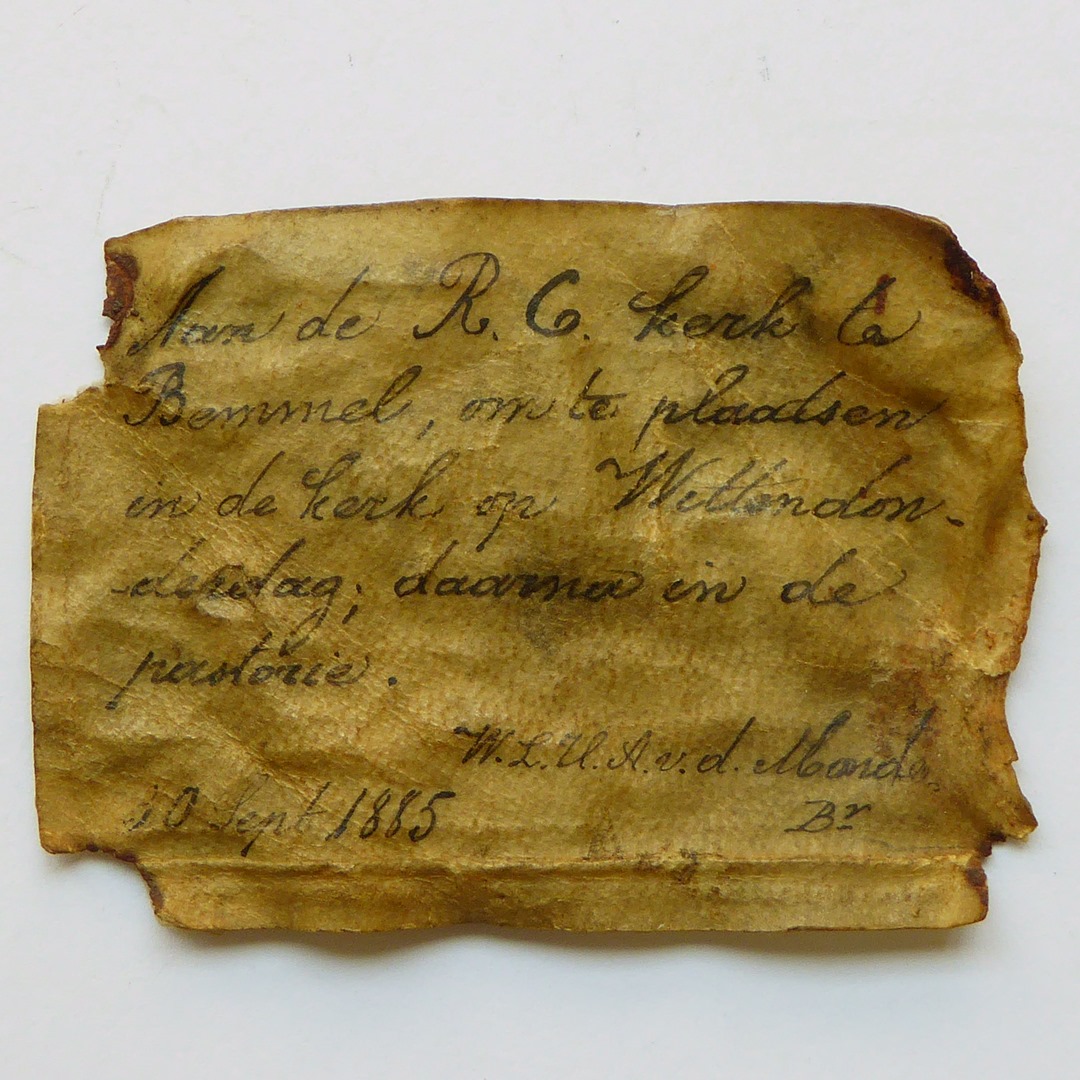 Aan de R. C. kerk te
Bemmel, om te plaatsen
in de kerk op Wittendon-
-derdag; daarna in de
pastorie.
W. L. U. A. v. d.
10 Sept 1885
Br